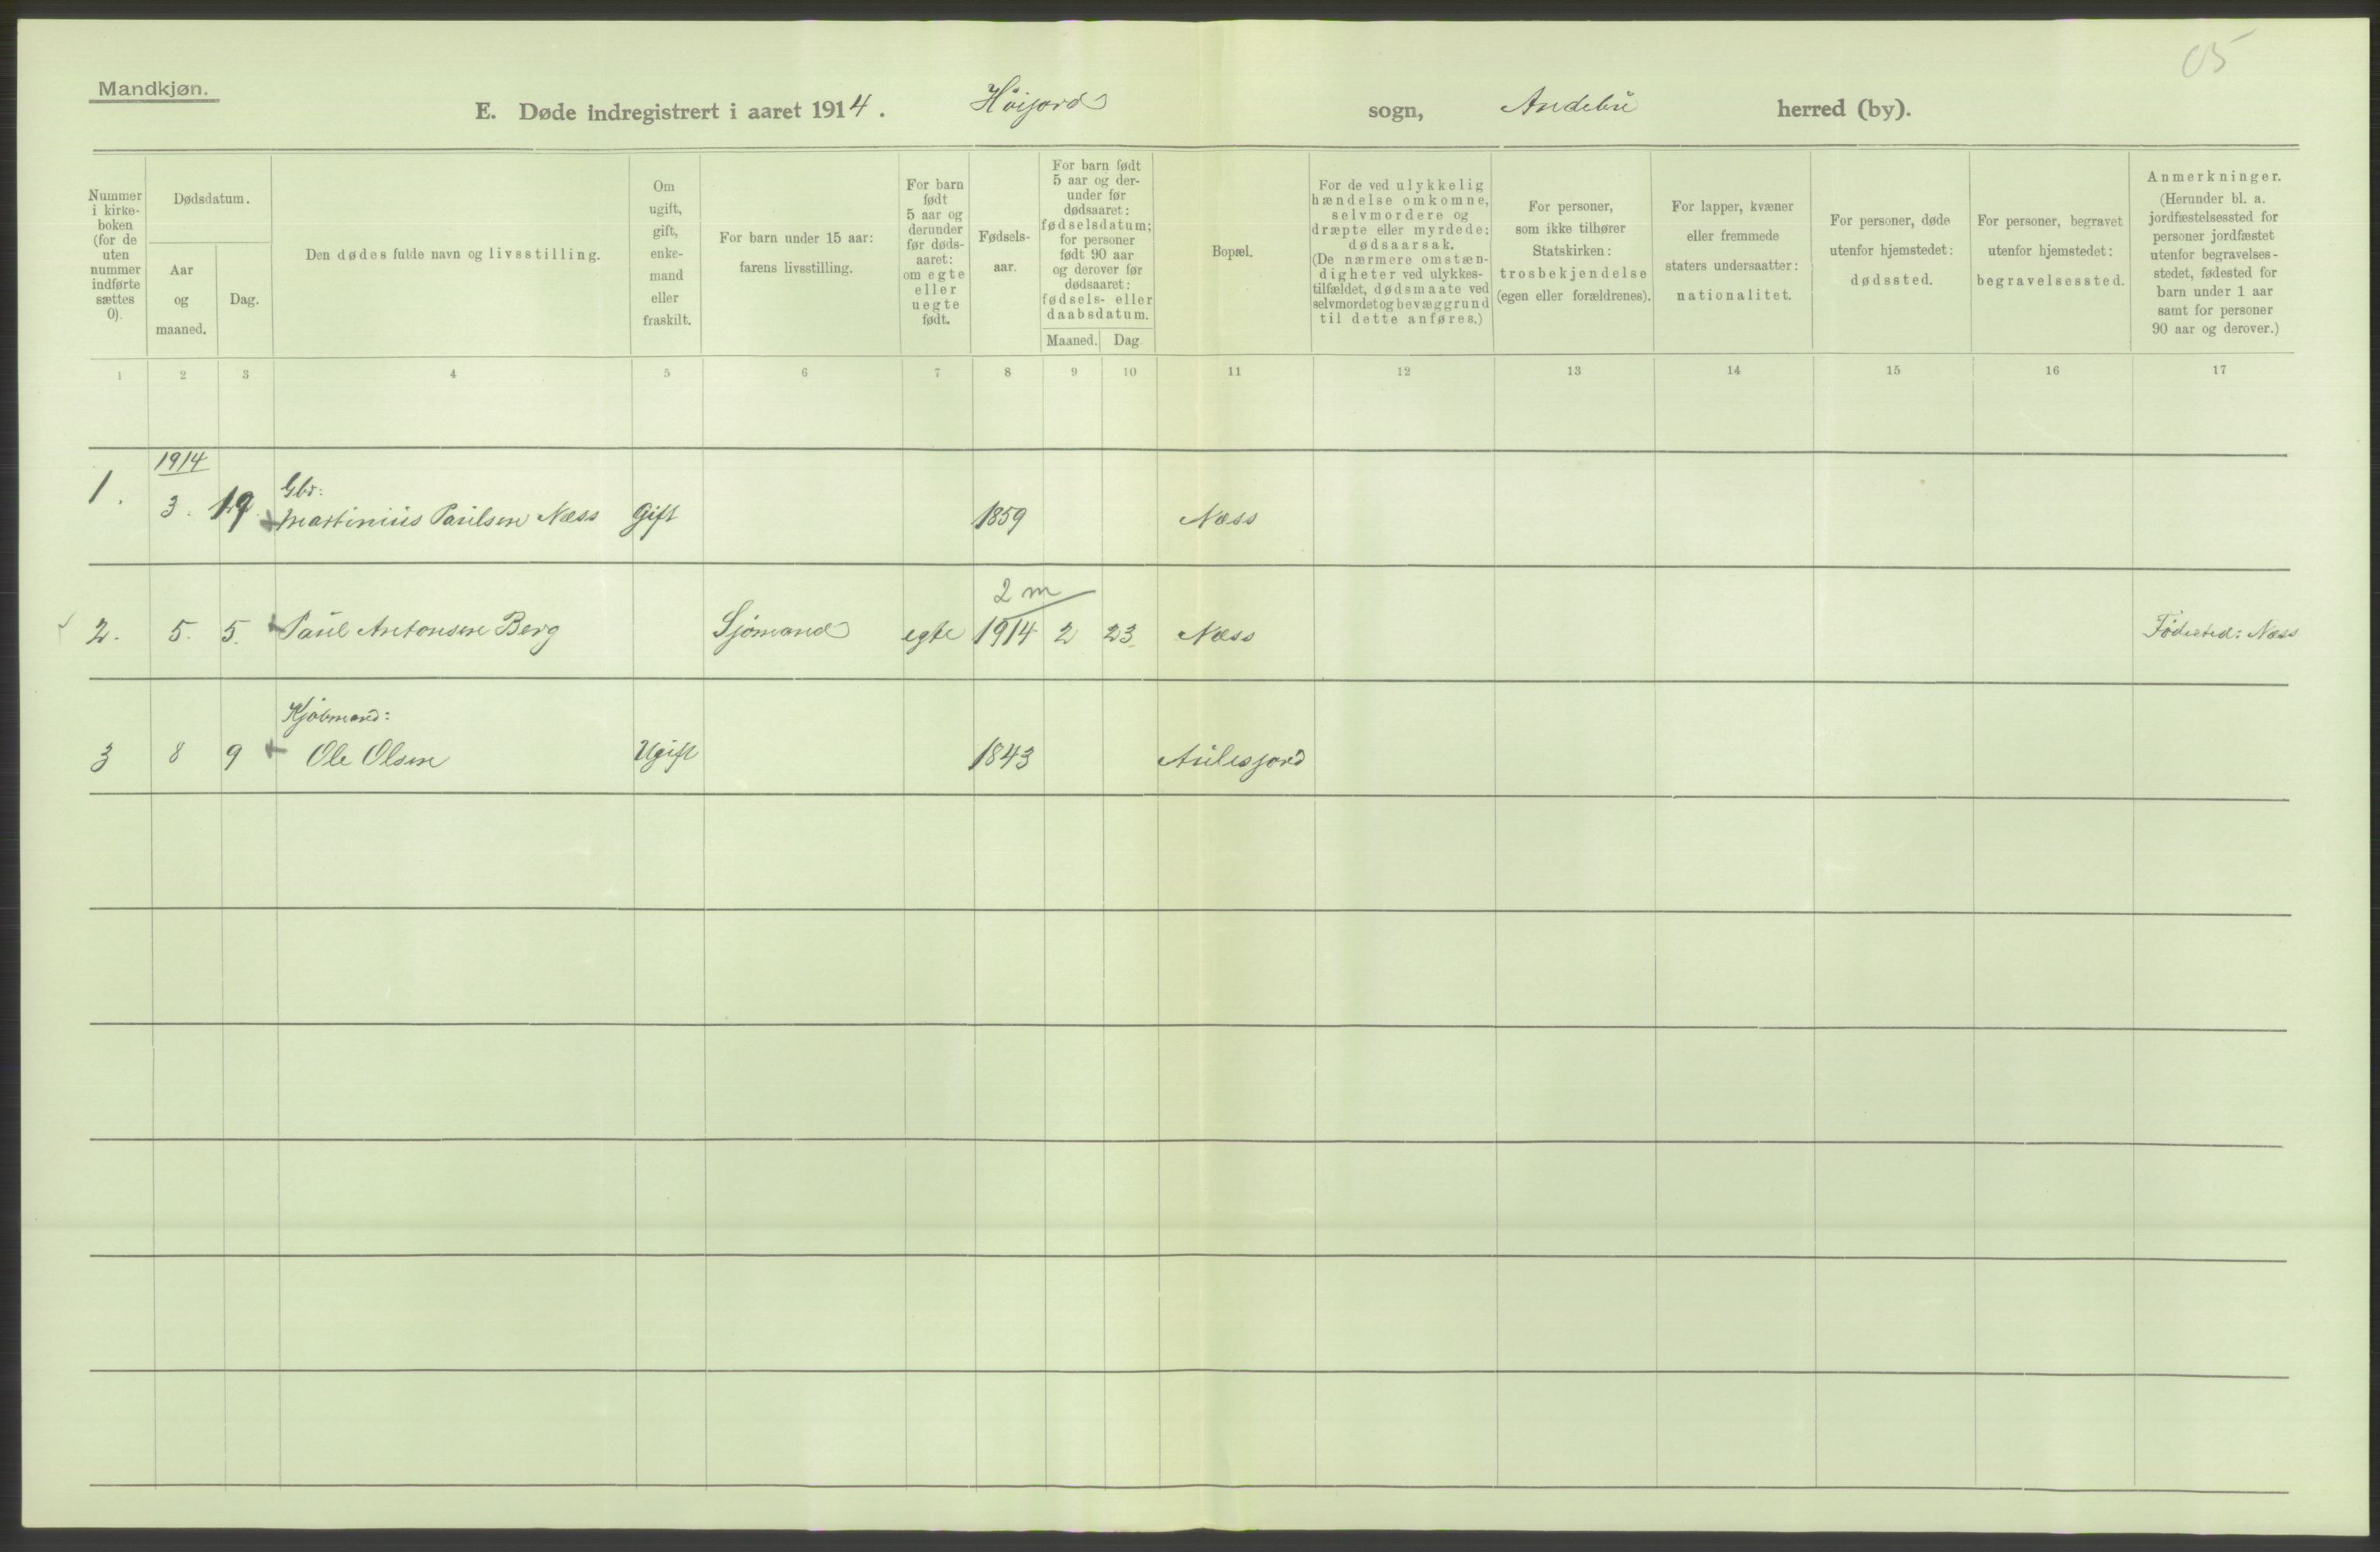 05
Mandkjøn.
E. Døde indregistrert i aaret 1914. Høijord sogn, Andebu herred (by).
Nummer i kirke-boken (for de uten nummer indførte sættes 0).
Dødsdatum.
Aar og maaned.
Dag.
Den dødes fulde navn og livsstilling.
Om ugift, gift, enke-mand eller fraskilt.
For barn under 15 aar: farens livsstilling.
For barn født 5 aar og derunder før døds-aaret: om egte eller uegte født.
Fødsels-aar.
For barn født 5 aar og der-under før dødsaaret: fødselsdatum; for personer født 90 aar og derover før dødsaaret: fødsels- eller daabsdatum.
Maaned. Dag
Bopæl.
For de ved ulykkelig hændelse omkomne, selvmordere og dræpte eller myrdede: dødsaarsak. (De nærmere omstæn-digheter ved ulykkes-tilfældet, dødsmaate ved selvmordet og bevæggrund til dette anføres.)
For personer, som ikke tilhører Statskirken: trosbekjendelse (egen eller forældrenes).
For lapper, kvæner eller fremmede staters undersaatter: nationalitet.
For personer, døde utenfor hjemstedet: dødssted.
For personer, begravet utenfor hjemstedet: begravelsessted.
Anmerkninger. (Herunder bl. a. jordfæstelsessted for personer jordfæstet utenfor begravelses-stedet, fødested for barn under 1 aar samt for personer 90 aar og derover.)
1 2 3 4 5 6 7 8 9 10 11 12 13 14 15 16 17
1914
Gbr:
1. 3. 19. Martinius Paulsen Næss Gift 1859 Næss
2 m
2. 5. 5. Paul Antonsen Berg Sjømand egte 1914 2 23 Næss Fødested: Næss
Kjøbmand:
3 8 9 Ole Olsen Ugift 1843 Aulesjord